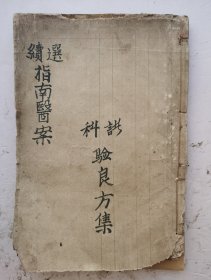 選續指南醫案
諸科驗良方集